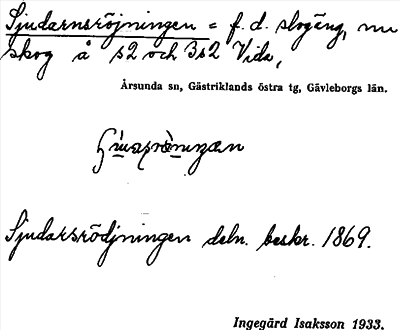 Sjudarnsröjningen = f. d. slogäng, nu
skog å s2 och 3s2 Vida,
Årsunda sn, Gästriklands östra tg, Gävleborgs län.
Sjudarsrödjningen deln. beskr. 1869.
Ingegärd Isaksson 1933.